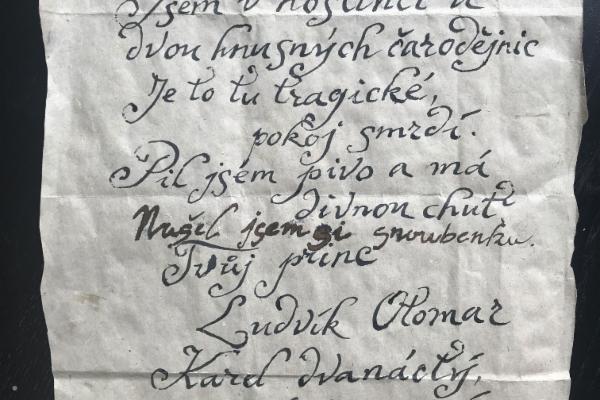 Jsem v hostinci u
dvou hnusných čarodějnic
Je to tu tragické,
pokoj smrdí.
Pil jsem pivo a má
divnou chuť
Našel jsem si snoubenku.
Tvůj princ
Ludvík Otomar
Karel dvanáctý,